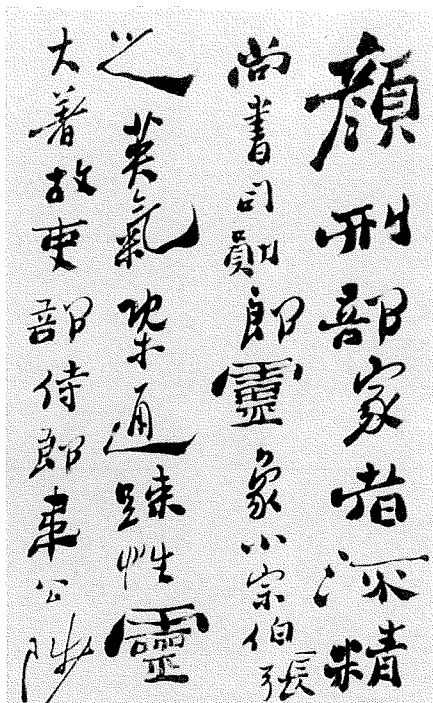 顏刑部家者流精
尚書司勲郎靈象小宗伯張
之英氣槩通踈性靈
大著故吏部侍郎韋公陟